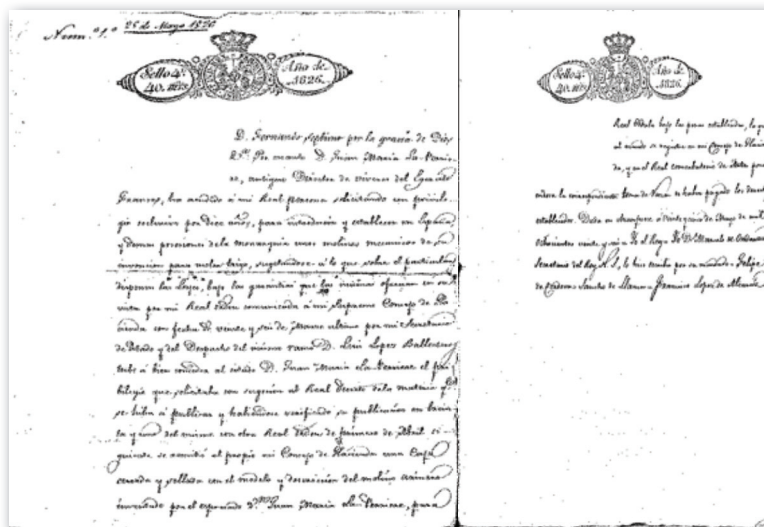 Num.º 1.º
25 de Mayo 1826
Sello 4º
40. mrs
Año de
1826.
D. Fernando septimo por la gracia de Dios
Por cuanto D. Juan Maria La
antiguo Director de viveres del Egercito
Frances, ha acudido á mi Real persona solicitando con privile-
gio exclusivo por diez años, para introducir y establecer en España
y demas posesiones de la monarquia unos molinos mecanicos de su
invencion para moler trigo, sugetandose á lo que sobre el particular
disponen las Leyes, bajo las garantias que las mismas ofrecen en su
vista por mi Real orden comunicada á mi Supremo Consejo de Ha-
cienda con fecha de veinte y seis de Marzo ultimo por mi Secretario
de Estado y del Despacho del mismo ramo D. Luis Lopez Ballesteros
tube á bien conceder al citado D. Juan Maria La el pri-
bilegio que solicitaba con sugecion al Real Decreto de la materia q.e
se hiba á publicar y habiendose verificado su publicacion en
del mismo con otra Real orden de primero de Abril si-
guiente se remitió al propio mi Consejo de Hacienda una Caja
cerrada y sellada con el modelo y descripcion del molino
inventado por el espresado D.n Juan Maria La para
Sello 4º
40. mrs
Año de
1826.
Real Cedula bajo las penas establecidas, la
al mando se registre en mi Consejo de Hacien-
da, y en el Real conservatorio de Artes
la correspondiente toma de razon se haban pagado los
establecidos. Dada en Aranjuez á veinte y cinco de Mayo de mil
Ochocientos veinte y seis = Yo el Rey = Yo D.n Manuel de
Secretario del Rey N. S. lo hice escribir por su mandado = Felipe
de Sancho de Llamas = Francisco Lopez de